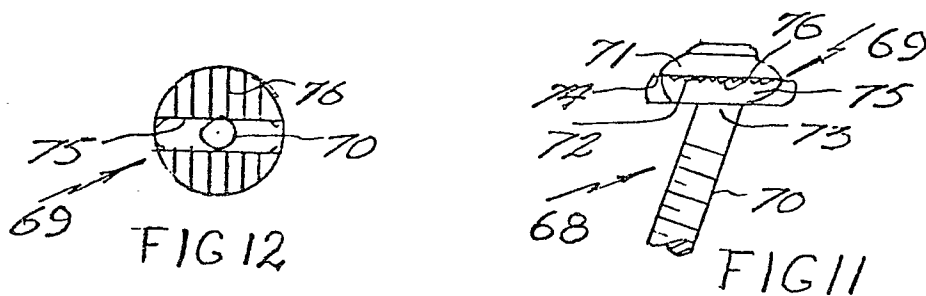 76
75
70
69
FIG 12
71
76
69
74
75
72
73
68
70
FIG 11